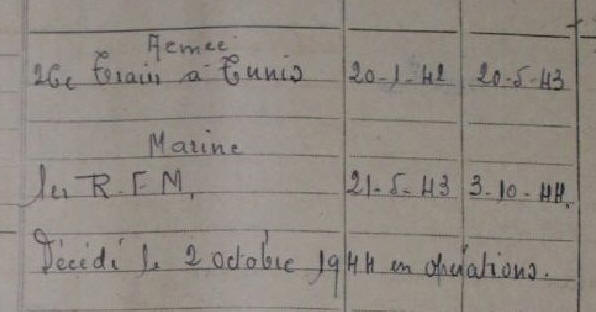 Armée
26e Train à Tunis 20-1-42 20-5-43
Marine
1er R.F.M. 21-5-43 3-10-44.
Décédé le 2 octobre 1944 en opérations.